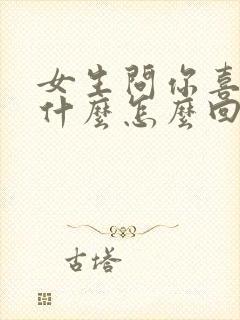 女生問你喜
什麼怎麼回
古塔